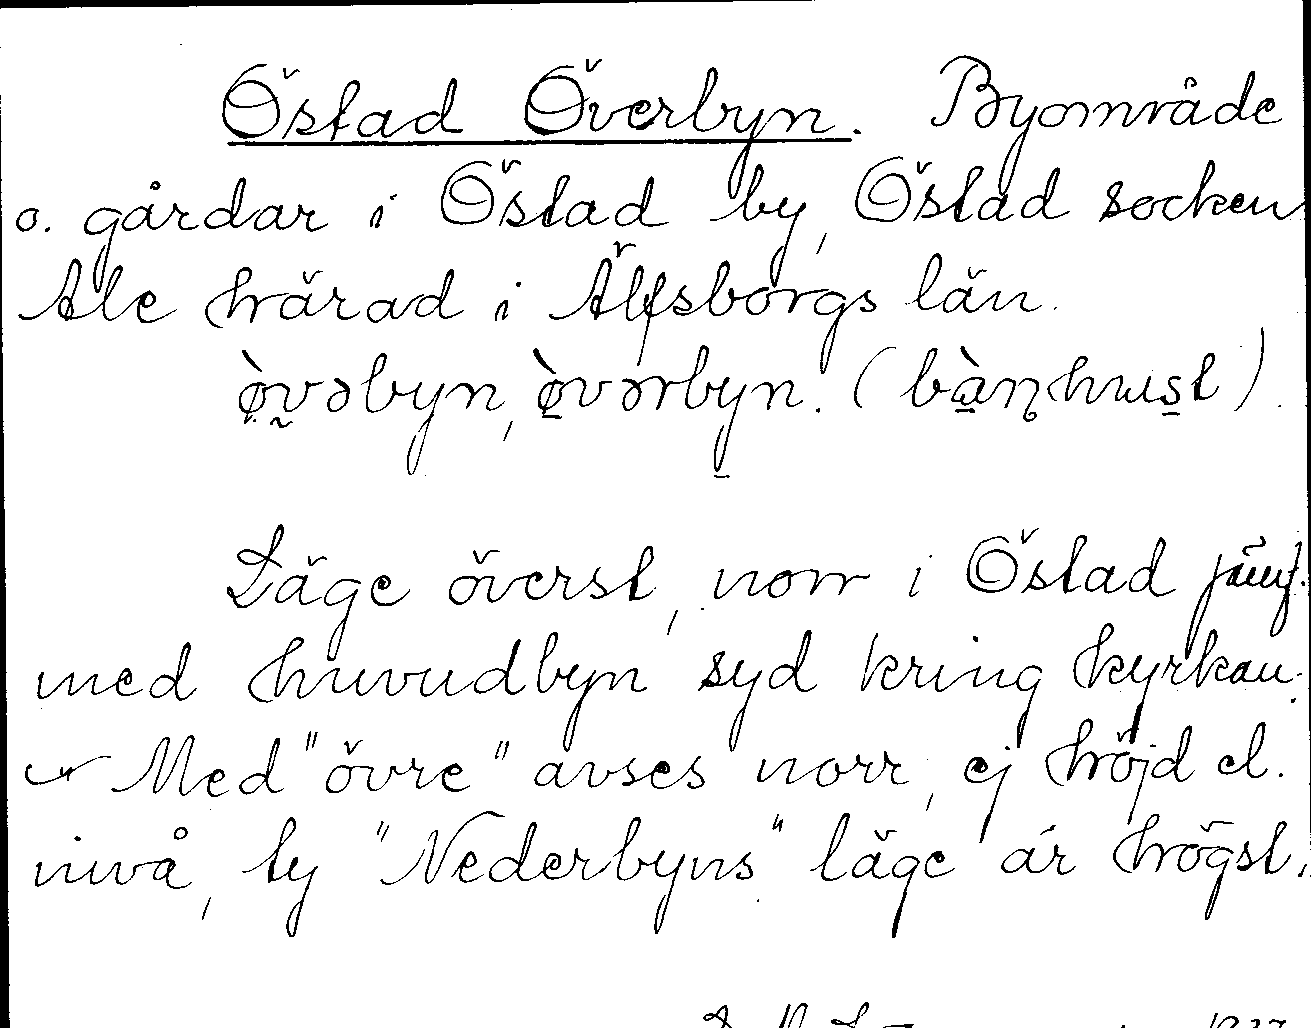 Östad Överbyn. Byområde
o. gårdar i Östad by, Östad socken
Ale härad i Älfsborgs län.
ø̀vəbyn, ø̀vərbyn. (bàɳhust).
Läge överst, norr i Östad jämf.
med huvudbyn syd kring kyrkan.
Med "övre" avses norr, ej höjd el.
nivå, ty "Nederbyns" läge är högst.